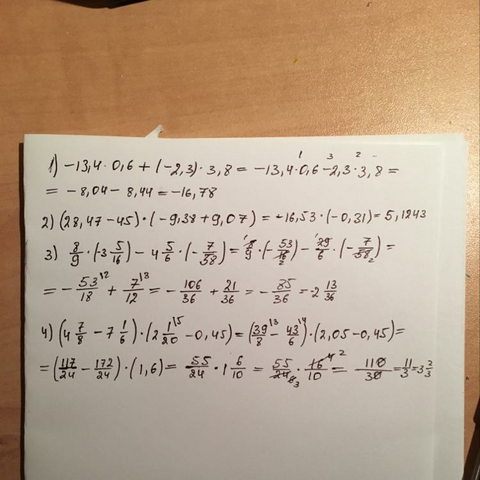 1) -13,4·0,6+(-2,3)·3,8=-13,4·0,6-2,3·3,8=
=-8,04-8,44=-16,78
2) (28,47-45)·(-9,38+9,07)=-16,53·(-0,31)=5,1243
3) 8/9·(-3 5/16)-4 5/6·(-7/58)=8/9·(-53/16)-29/6·(-7/58)=
=-53/18+7/12=-106/36+21/36=-85/36=-2 13/36
4) (4 7/8-7 1/6)·(2 1/20-0,45)=(39/8-43/6)·(2,05-0,45)=
=(117/24-172/24)·(1,6)=55/24·1 6/10=55/24·16/10=110/30=11/3=3 2/3